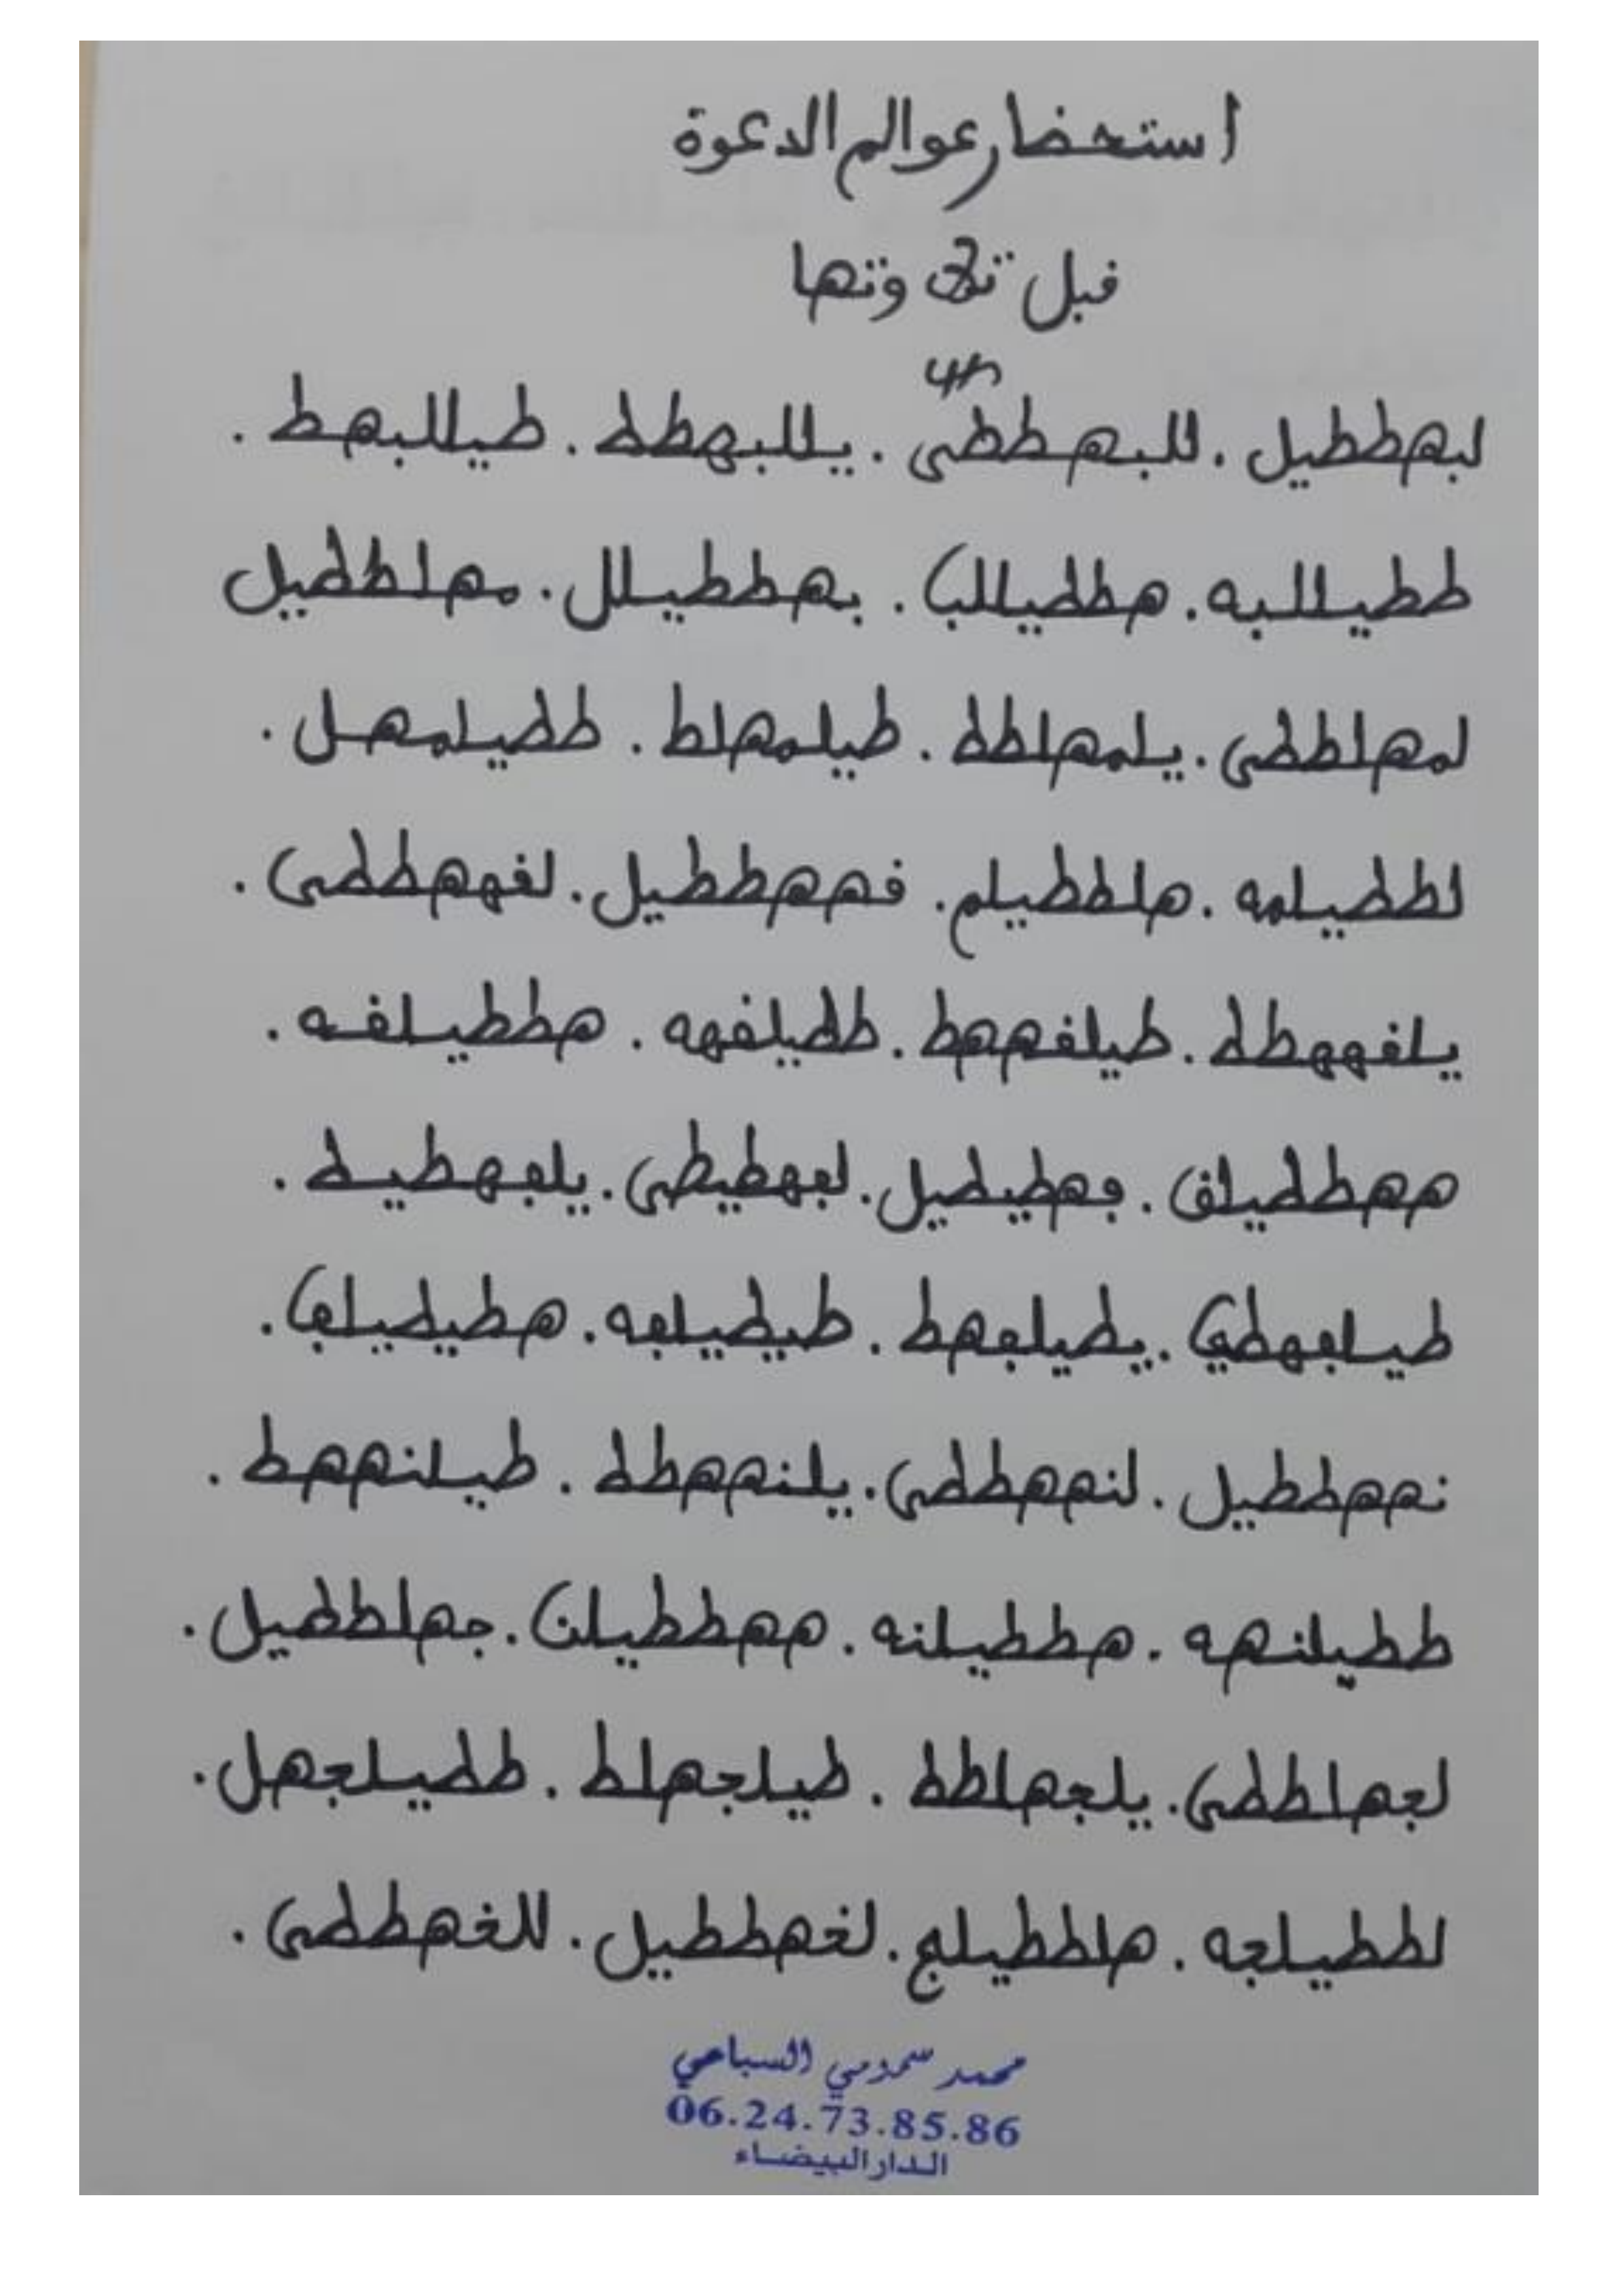 استحضار عوالم الدعوة
قبل تلاوتها
لبهططيل . للبهططى . يللبهطط . طيللبهط .
ططيللبه . هططيللب . بهططيلل . مهلططيل
لمهلططى . يلمهلطط . طيلمهلط . ططيلمهل .
لططيلمه . هلططيلم . فههططيل . لفههططى .
يلفههطط . طيلفههط . ططيلفهه . هططيلفه .
ههططيلف . فهطيطيل . لفهطيطى . يلفهطيط .
طيلفهطي . يطيلفهط . طيطيلفه . هطيطيلف .
نههططيل . لنههططى . يلنههطط . طيلنههط .
ططيلنهه . هططيلنه . ههططيلن . جهلططيل .
لجهلططى . يلجهلطط . طيلجهلط . ططيلجهل .
لططيلجه . هلططيلج . لخهططيل . للخهططى .
محمد سمومي السباعي
06.24.73.85.86
الدار البيضاء